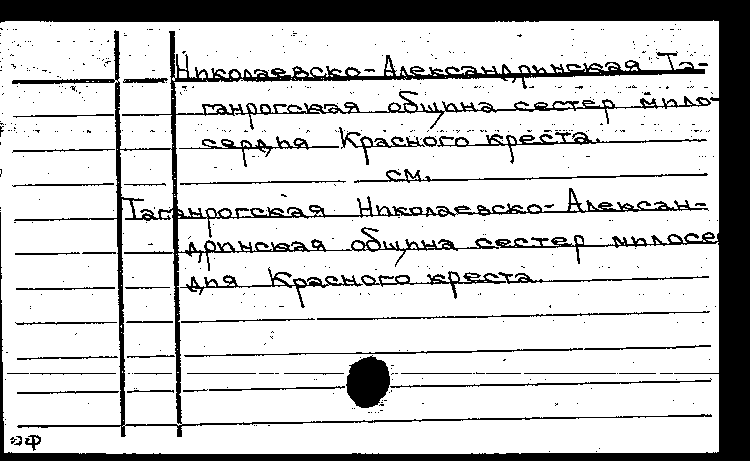 Николаевско-Александринская Та-
ганрогская община сестер мило-
сердия Красного креста.
см.
Таганрогская Николаевско-Алексан-
дринская община сестер милосе
дия Красного креста.